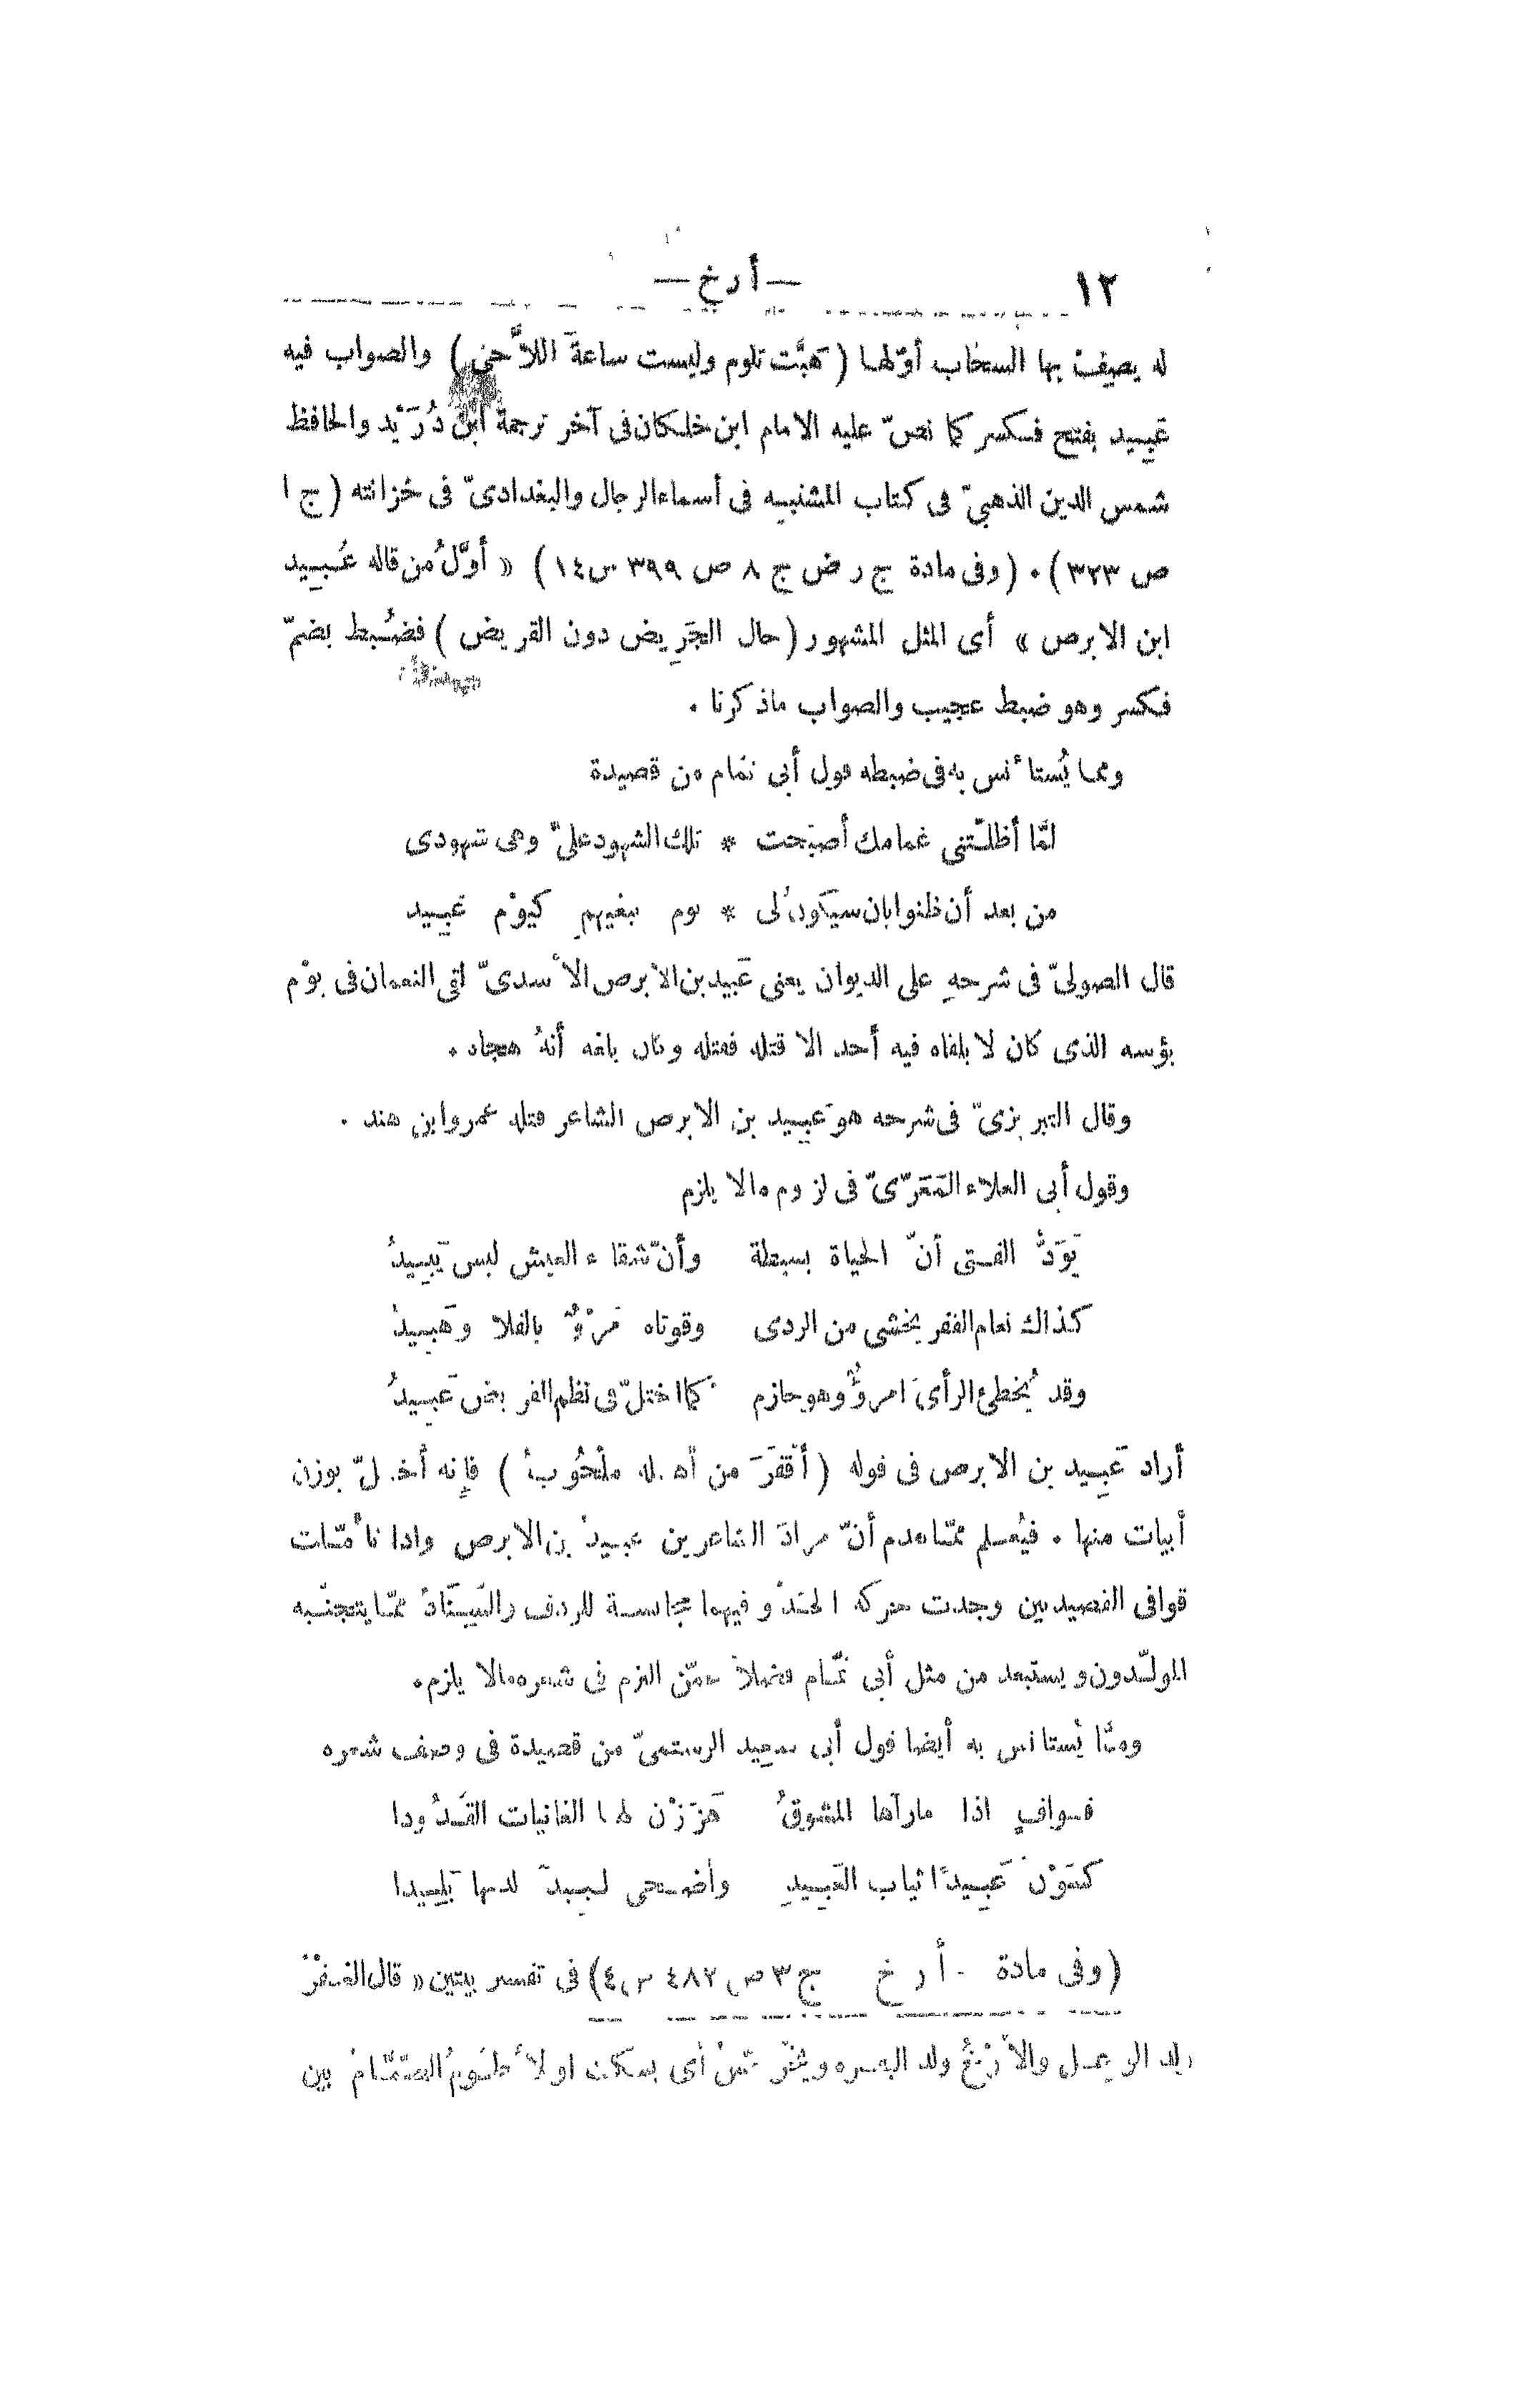 ١٢
— أ ر خ —
له يصِفُ بها السحَاب أوّلها ( هَبَّت تلوم وليست ساعةَ اللاَّحى ) والصواب فيه
عَبِيد بفتح فكسر كما نصّ عليه الامام ابن خلكان فى آخر ترجمة ابن دُرَيْد والحافظ
شمس الدين الذهبيّ فى كتاب المشتبه فى أسماء الرجال والبغدادىّ فى خزانته ( ج ١
ص ٣٢٣ ) . ( وفى مادة ج ر ض ج ٨ ص ٣٩٩ س ١٤ ) « أوَّلُ من قاله عُبِيد
ابن الابرص » أى المثل المشهور ( حال الجَرِيض دون القريض ) فضُبط بضمّ
فكسر وهو ضبط عجيب والصواب ماذكرنا .
ومما يُستأنس به فى ضبطه قول أبى تمام من قصيدة
لمَّا أظلّتنى غمامك أصبَحت * تلك الشهود علىّ وهى شهودى
من بعد أن ظنوا بان سيَكونُ لى * يوم ببغيهِم كيوْم عَبِيد
قال الصولىّ فى شرحهِ على الديوان يعنى عَبِيد بن الابرص الأسدىّ لقى النعمان فى يوْم
بؤسه الذى كان لا يلقاه فيه أحد الا قتله فقتله وكان بلغه أنهُ هجاه .
وقال التبريزىّ فى شرحه هو عَبِيد بن الابرص الشاعر قتله عمروابن هند .
وقول أبى العلاء المَعَرّىّ فى لزوم مالا يلزم
يَوَدُّ الفتى أنّ الحياة بسيطة وأنّ شقاء العيش ليس يَبِيدُ
كذاك نعام القفر يخشى من الردى وقوتاه مَرْوٌ بالفلا وهَبِيدُ
وقد يُخطئ الرأىَ امرؤٌ وهو حازم كما اختلّ فى نظم القريض عَبِيدُ
أراد عَبِيد بن الابرص فى قوله ( أقْفَرَ من أهله ملْحُوبُ ) فإنه أخلّ بوزن
أبيات منها . فيُعلم ممّا تقدم أنّ مرادَ الشاعرين عبيدُ بن الابرص واذا تأمّلت
قوافى القصيدتين وجدت حركه الحَذْو فيهما مجانسة للردف والسِّنَادُ ممّا يتجنّبه
المولّدون ويستبعد من مثل أبى تمّام فضلاً عمّن التزم فى شعره مالا يلزم .
وممَّا يُستانس به أيضا قول أبى سعيد الرستمىّ من قصيدة فى وصف شعره
قوافٍ اذا مارآها المشوقُ هَزَزْن لها الغانيات القُدُودا
كسَوْنَ عَبِيدًا ثياب العَبِيدِ وأضحى لبيدٌ لديها بَلِيدا
( وفى مادة - أ ر خ ج ٣ ص ٤٨٢ س ٤ ) فى تفسير بيتين « قال
ولد والأَرْخُ ولد البقره أى يسكت بين